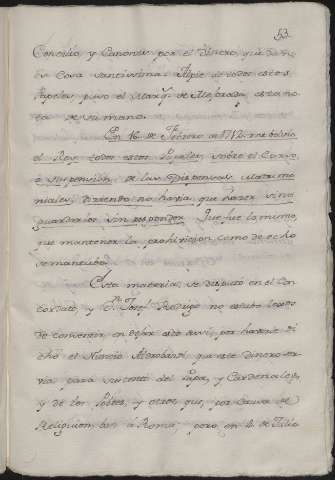 53
Concilio, y Canones por el dinero, que da
es cosa santissima: Al pie de todos estos
Papeles puso el Marq.s de Mejorada esta no
ta de su mano.
En 16 de Febrero de me bolvio
el Rey todos estos Papeles, sobre el Curso,
o suspension, de las Dispensas Matrimo
niales, diziendo no havia que hazer sino
guardarlos sin responder. Que fue lo mismo,
que mantener la prohivicion, como de echo
se mantubo.
Esta materia, se disputò en el Con
cordato, y D.n Joseph Rodrigo no estubo lexos
de convenir, en dejar esto assi, por haverle di
cho el Nuncio Aldobrandi que este dinero ser
via para sustento del Papa, y Cardenales,
y de los Pobres, y otros que, por causa de
Religion, van à Roma; pero, en 4 de Julio